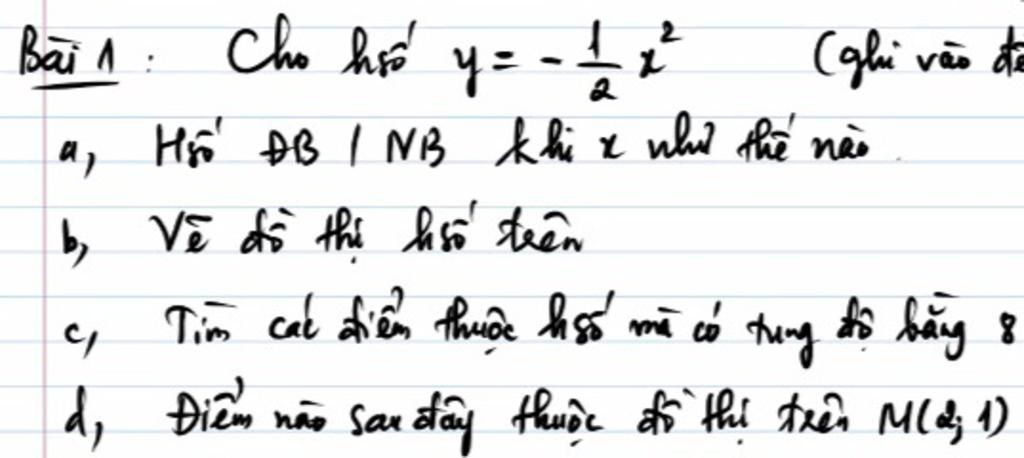 Bài 1 : Cho hsố y = - 1/2 x² (ghi vào đề
a, Hsố ĐB / NB khi x như thế nào.
b, Vẽ đồ thị hsố trên
c, Tìm các điểm thuộc hsố mà có tung độ bằng 8
d, Điểm nào sau đây thuộc đồ thị trên M(2; 1)